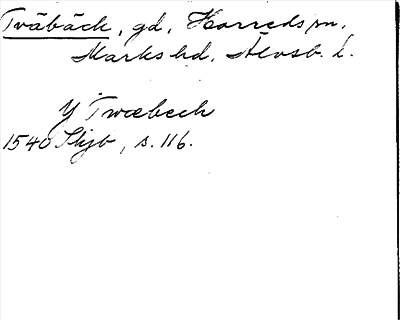 Tväbäck, gd, Horreds sn,
Marks hd, Älvsb. l.
Y Twæbeck
1540 Skjb, s. 116.